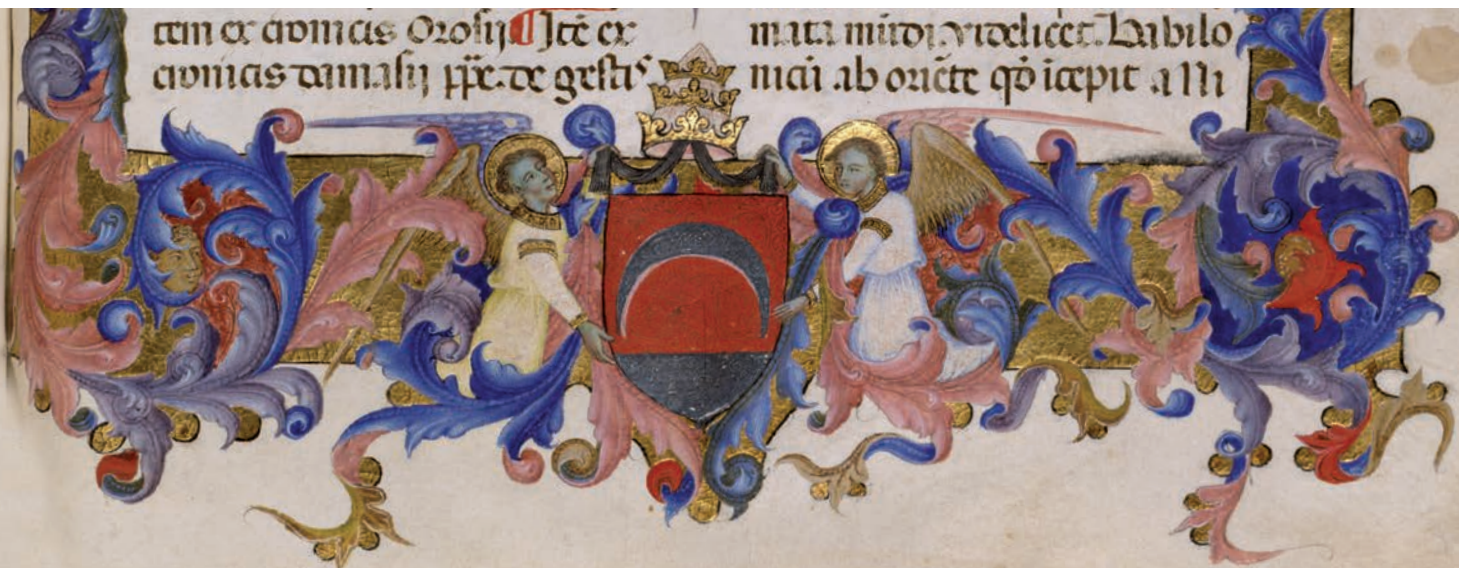 tem ex cronicis Orosij ¶ Itē ex
cronicis damasij pp̄e. de gestis
mata mūdi. videlicet. Babilo
nicū ab oriēte qđ īcepit a Ni